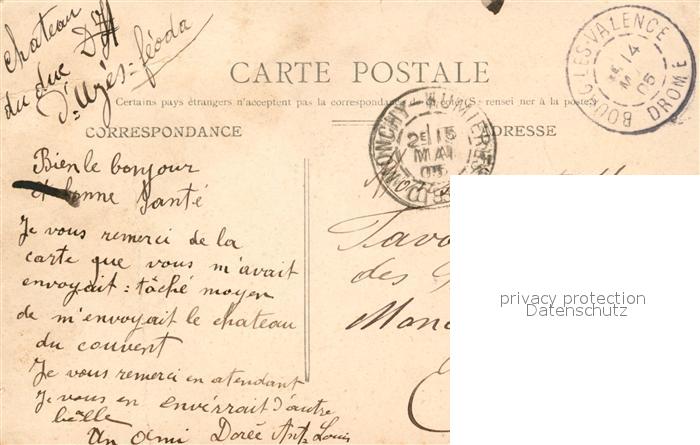 chateau
du duc D
d'Uzès = féodal
CARTE POSTALE
Certains pays étrangers n'acceptent pas la correspondance
CORRESPONDANCE
ADRESSE
BOURG-LES-VALENCE
14
MAI
05
DROME
MONCHY-HUMIERES
2E 15
MAI
05
Bien le bonjour
et bonne Santé
Je vous remerci de la
carte que vous m'avait
envoyait : tâché moyen
de m'envoyait le chateau
du couvent
Je vous remerci en atendant
Je vous en envérrait d'autre
bèlle
Un Ami Dorée Ant. Louis
des
privacy protection
Datenschutz